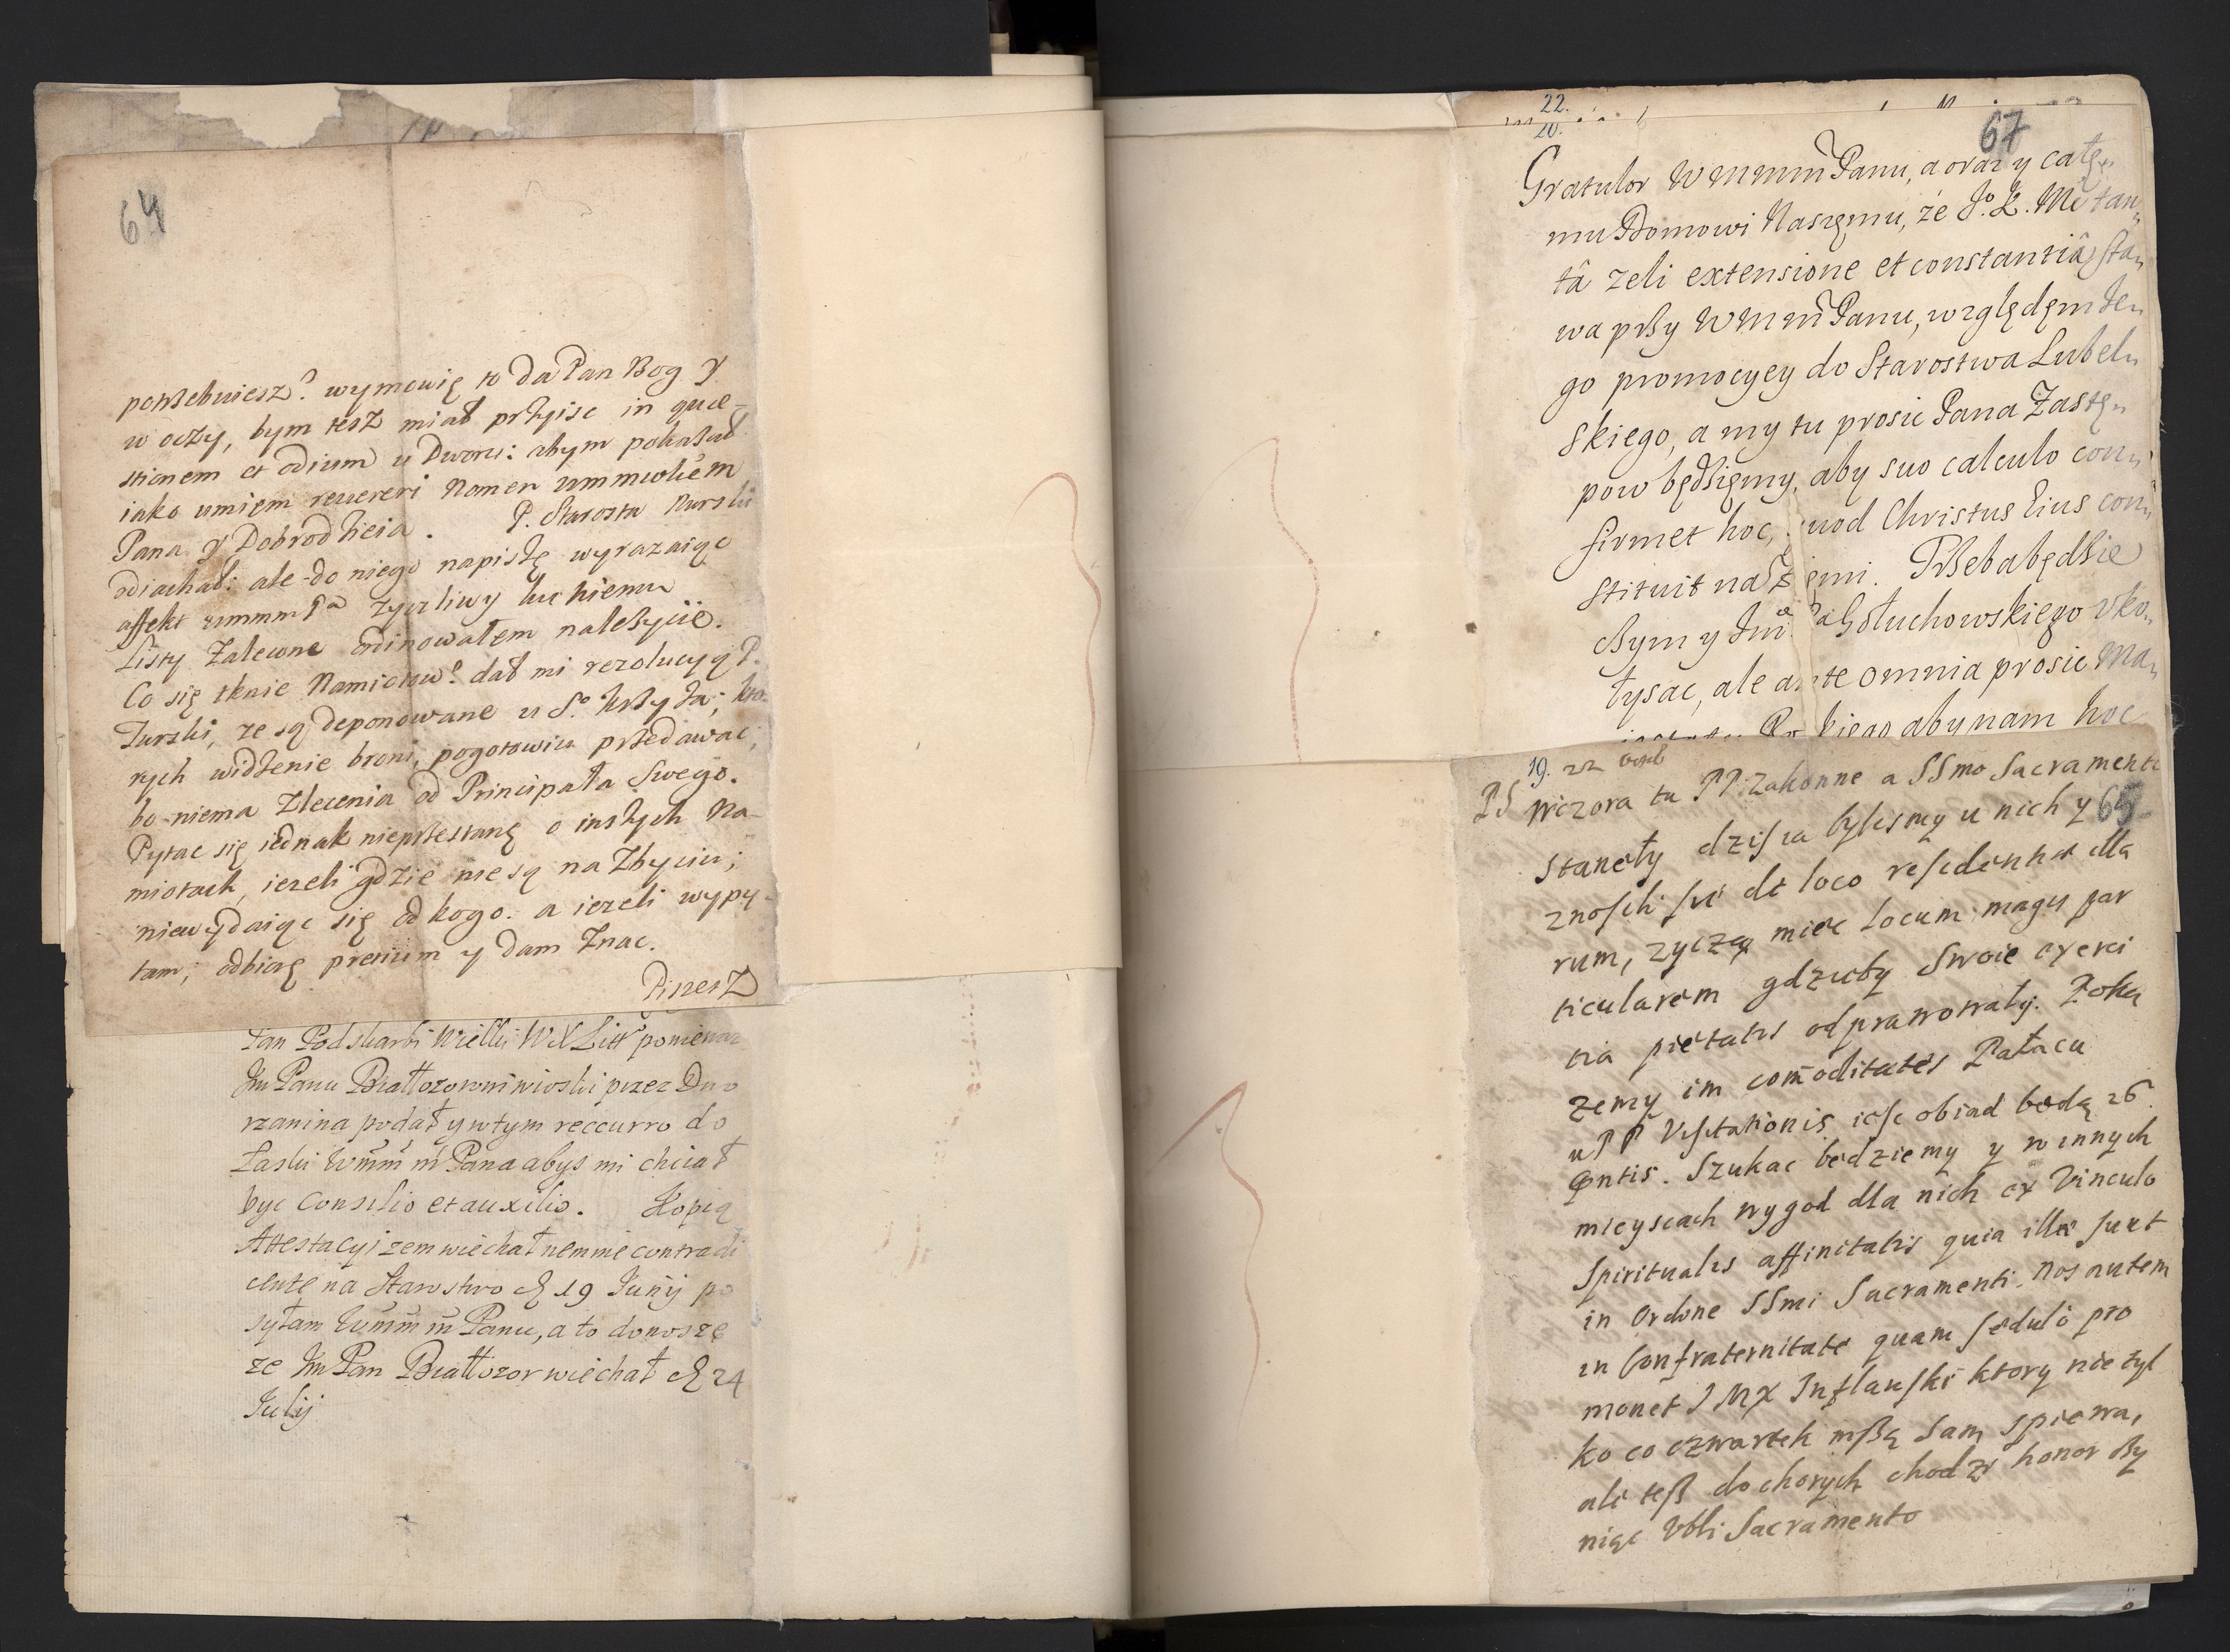 64
potrzebuiesz? wymowię to da Pan Bog y
w oczy, bym tesz miał przyisc in quae-
stionem et odium u Dworu: abym pokazał
iako umiem revereri Nomen
Pana y Dobrodzieia. P. Starosta Nurski
odiachał: ale do niego napiszę wyrazaiąc
affekt zyczliwy ku niemu
Listy Zalecone ordinowałem nalezycie.
Co się tknie Namiotow? dał mi rezolucyą P.
Turski, ze są deponowane u So Krzyża; kto-
rych widzenie broni, pogotowiu przedawac;
bo niema Zlecenia od Principała Swego.
Pytac się iednak nieprzestanę o inszych Na-
miotach, iezeli gdzie nie są na Zbyciu;
niewydaiąc się od kogo. a iezeli wypy-
tam; odbiorę precium y dam Znac.
Piszesz
Pan Podskarbi Wielki WXLitt poniewaz
Im Panu Białłozorowi wioski przez Dwo
rzanina podał y wtym reccurro do
Łaski Wmm m Pana abys mi chciał
byc Consilio et auxilio. Kopią
Attestacyi zem wiechał nemine contradi
cente na Starostwo 19 Junij po
syłam Wmm m Panu, a to donoszę
ze Im Pan Białłozor wiechał 24
Julij
22.
20.
67
Gratulor WMMM Panu, a oraz y całe„
mu Domowi Naszęmu, że Jo. K. Mć tan„
tâ zeli extensione et constantiâ sta„
wa przy WMMM Panu, względęm te„
go promocyey do Starostwa Lubel„
skiego, a my tu prosic Pana Zastę„
pow będzięmy, aby suo calculo con„
firmet hoc, quod Christus Eius con„
stituit na Zięmi. Trzeba będzie
Gołuchowskiego Uko„
łysac, ale ante omnia prosic Ma„
aby nam hoc
19. 22
PS Wczora tu PP Zakonne a SSmo Sacramento
65
Stanęły dzisia bylismy u nich y
de loco residentiae illa
rum, zyczą miec locum magis par
ticularem gdzieby Swoie exerci
tia pietatis odprawowały. Poka
zemy im comoditates Pałacu
u PP Visitationis iesc obiad będą 26
Szukac będziemy y w innych
mieyscach wygod dla nich ex Vinculo
Spiritualis affinitatis quia illae sunt
in Ordine SSmi Sacramenti. nos autem
in Confraternitate quam sedulo pro
monet JMX Inflanski ktory nie tyl
ko co czwartek mszą sam spiewa,
ale tesz do chorych chodzi honor czy
niąc Vbli Sacramento